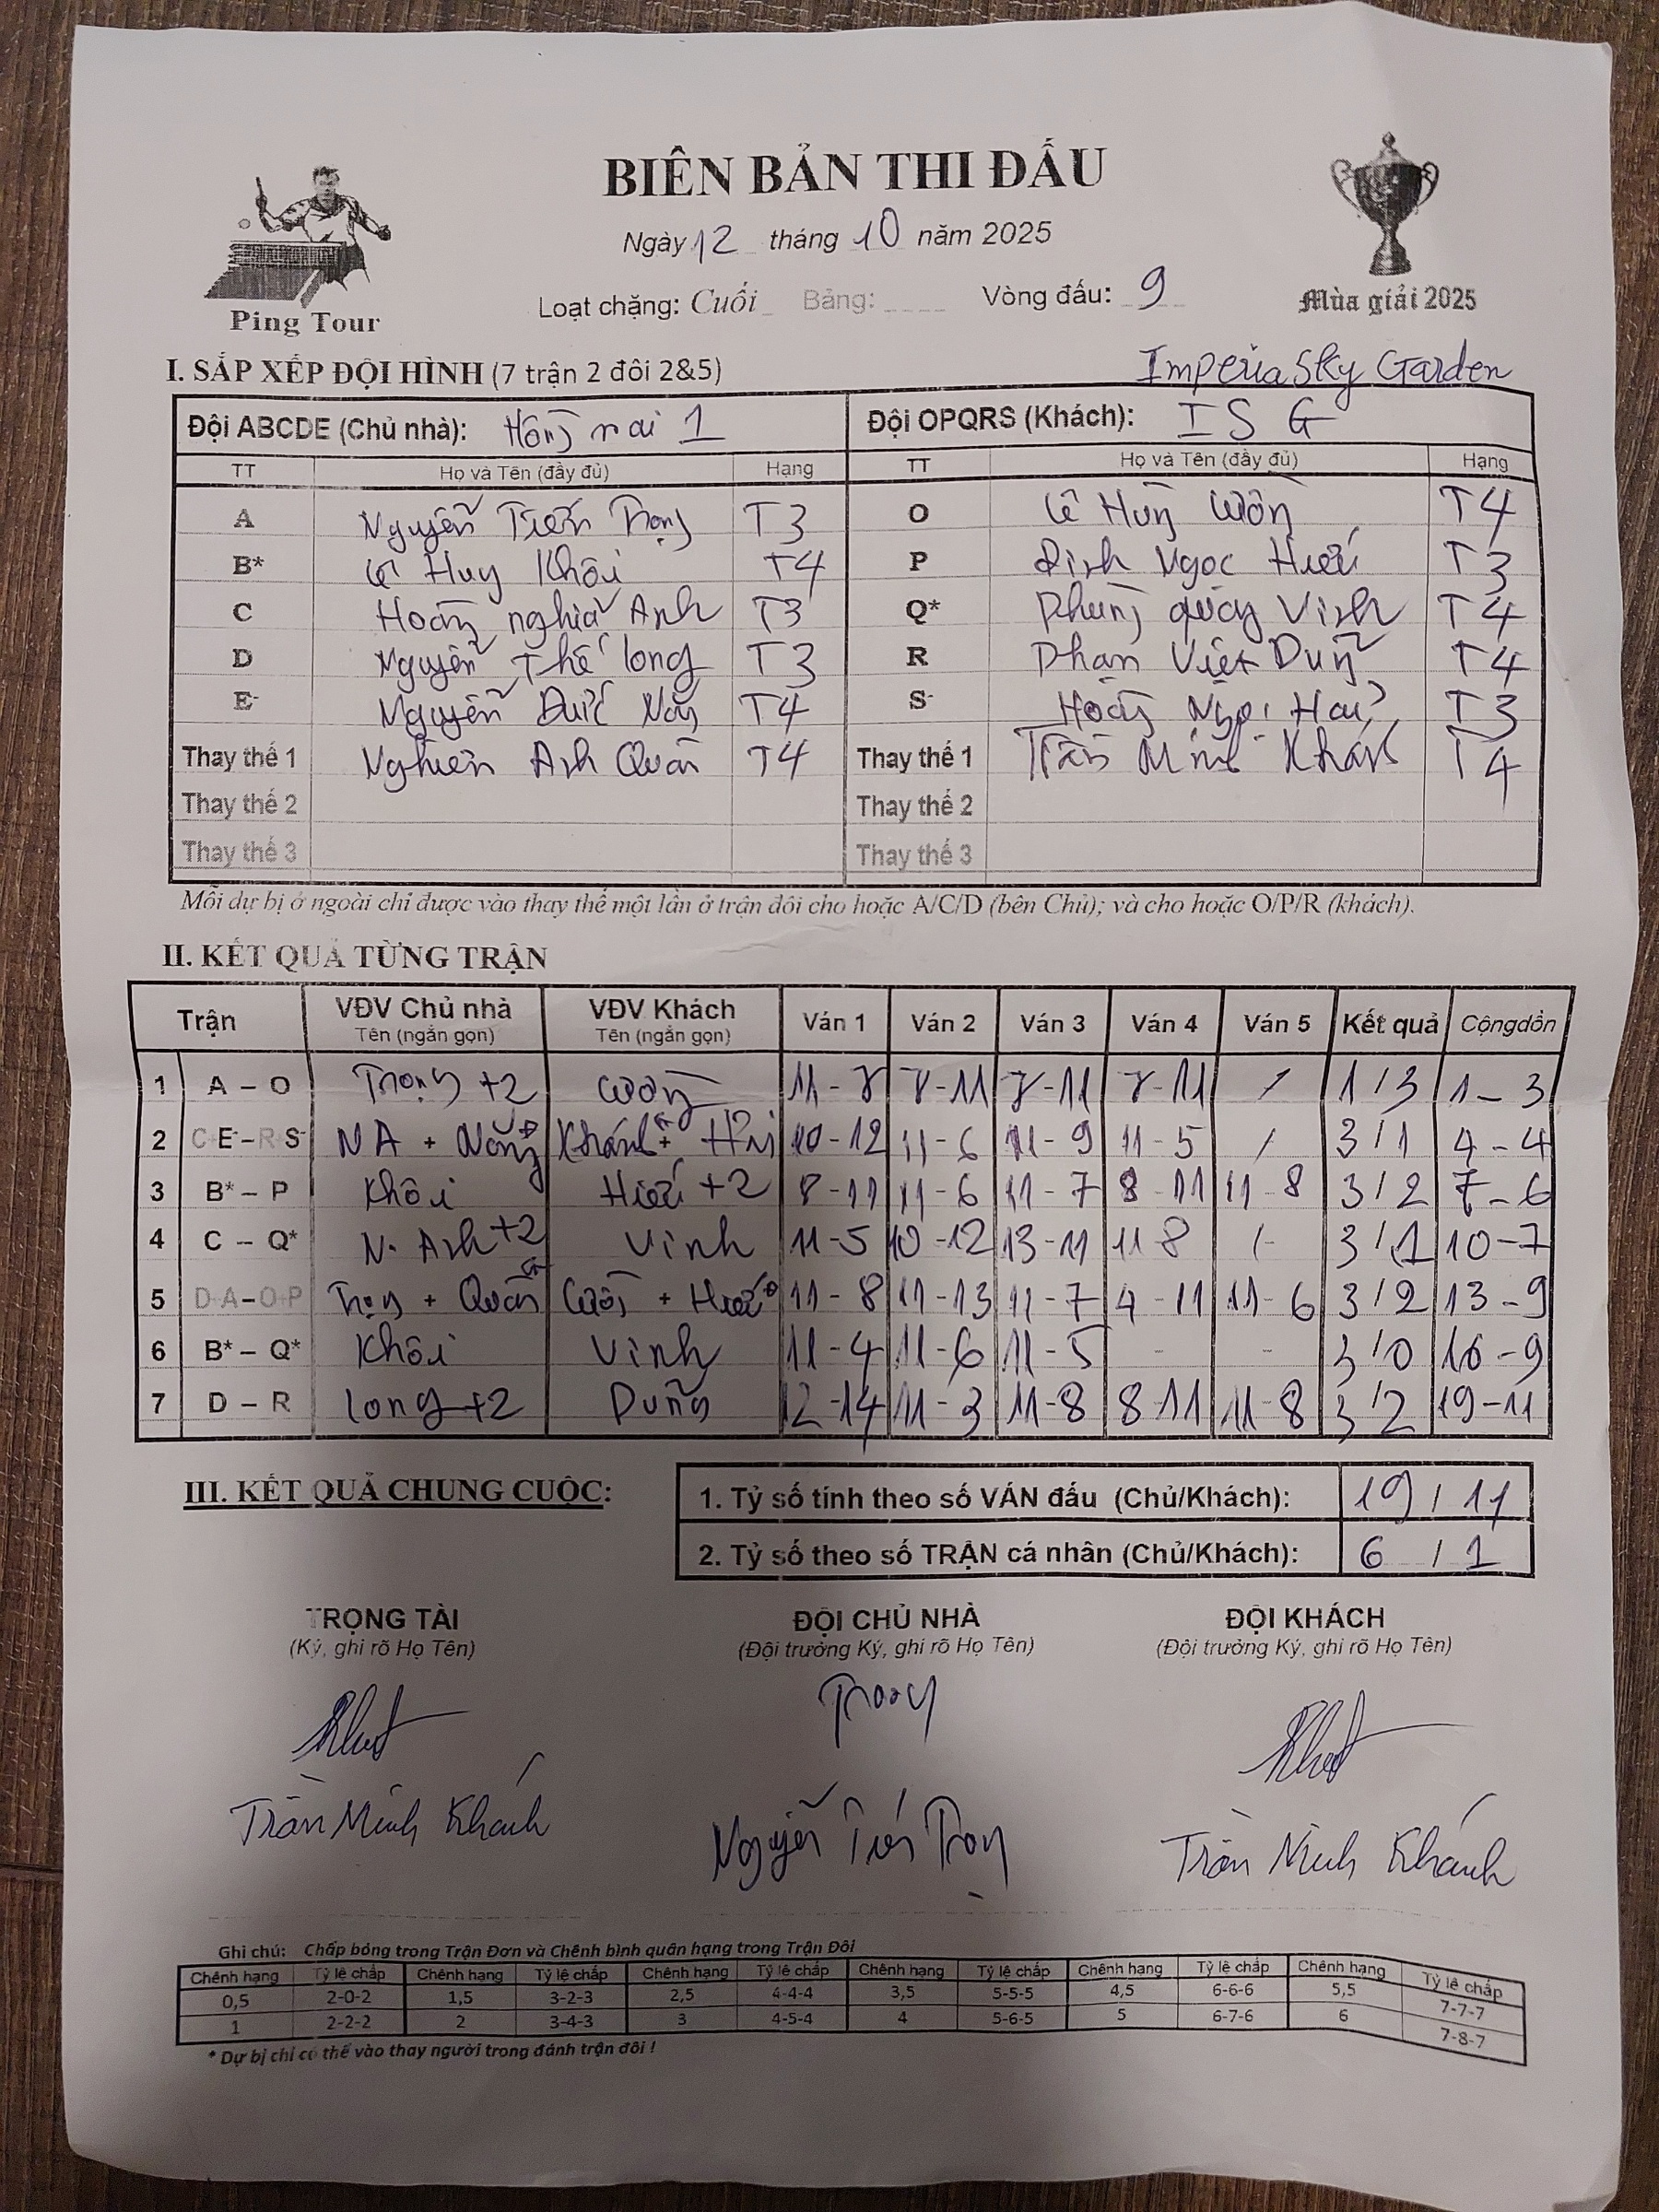 BIÊN BẢN THI ĐẤU
Ngày 12 tháng 10 năm 2025
Loạt chặng: Cuối Bảng: Vòng đấu: 9
Ping Tour
Mùa giải 2025
I. SẮP XẾP ĐỘI HÌNH (7 trận 2 đôi 2&5)
Imperia Sky Garden
Đội ABCDE (Chủ nhà): 1 Đội OPQRS (Khách): ISG
TT Họ và Tên (đầy đủ) Hạng TT Họ và Tên (đầy đủ) Hạng
A Nguyễn Tiến Trọng T3 O Lê Hùng T4
B* Lê Huy Khôi T4 P Đinh Ngọc Hiếu T3
C Hoàng nghĩa Anh T3 Q* Phùng quang Vinh T4
D Nguyễn Thế long T3 R Phan Việt Dũng T4
E- Nguyễn Đức T4 S- Hoàng Ngọc Hải T3
Thay thế 1 Anh Quân T4 Thay thế 1 Trần Minh Khánh T4
Thay thế 2 Thay thế 2
Thay thế 3 Thay thế 3
Mỗi dự bị ở ngoài chỉ được vào thay thế một lần ở trận đôi cho hoặc A/C/D (bên Chủ); và cho hoặc O/P/R (khách).
II. KẾT QUẢ TỪNG TRẬN
Trận VĐV Chủ nhà VĐV Khách Ván 1 Ván 2 Ván 3 Ván 4 Ván 5 Kết quả Cộngdồn
Tên (ngắn gọn) Tên (ngắn gọn)
1 A – O Trọng +2 11-8 8-11 8-11 8-11 / 1/3 1-3
2 C+E- – R+S- NA + Khánh + Hải 10-12 11-6 11-9 11-5 / 3/1 4-4
3 B* – P Khôi Hiếu +2 8-11 11-6 11-7 8-11 11-8 3/2 7-6
4 C – Q* N. Anh +2 Vinh 11-5 10-12 13-11 11-8 / 3/1 10-7
5 D+A – O+P Trọng + Quân + Hiếu 11-8 11-13 11-7 4-11 11-6 3/2 13-9
6 B* – Q* Khôi Vinh 11-4 11-6 11-5 - - 3/0 16-9
7 D – R long +2 Dũng 12-14 11-3 11-8 8-11 11-8 3/2 19-11
III. KẾT QUẢ CHUNG CUỘC:
1. Tỷ số tính theo số VÁN đấu (Chủ/Khách): 19 / 11
2. Tỷ số theo số TRẬN cá nhân (Chủ/Khách): 6 / 1
TRỌNG TÀI ĐỘI CHỦ NHÀ ĐỘI KHÁCH
(Ký, ghi rõ Họ Tên) (Đội trưởng Ký, ghi rõ Họ Tên) (Đội trưởng Ký, ghi rõ Họ Tên)
Trần Minh Khánh Nguyễn Tiến Trọng Trần Minh Khánh
Ghi chú: Chấp bóng trong Trận Đơn và Chênh bình quân hạng trong Trận Đôi
Chênh hạng Tỷ lệ chấp Chênh hạng Tỷ lệ chấp Chênh hạng Tỷ lệ chấp Chênh hạng Tỷ lệ chấp Chênh hạng Tỷ lệ chấp Chênh hạng Tỷ lệ chấp
0,5 2-0-2 1,5 3-2-3 2,5 4-4-4 3,5 5-5-5 4,5 6-6-6 5,5 7-7-7
1 2-2-2 2 3-4-3 3 4-5-4 4 5-6-5 5 6-7-6 6 7-8-7
* Dự bị chỉ có thể vào thay người trong đánh trận đôi !